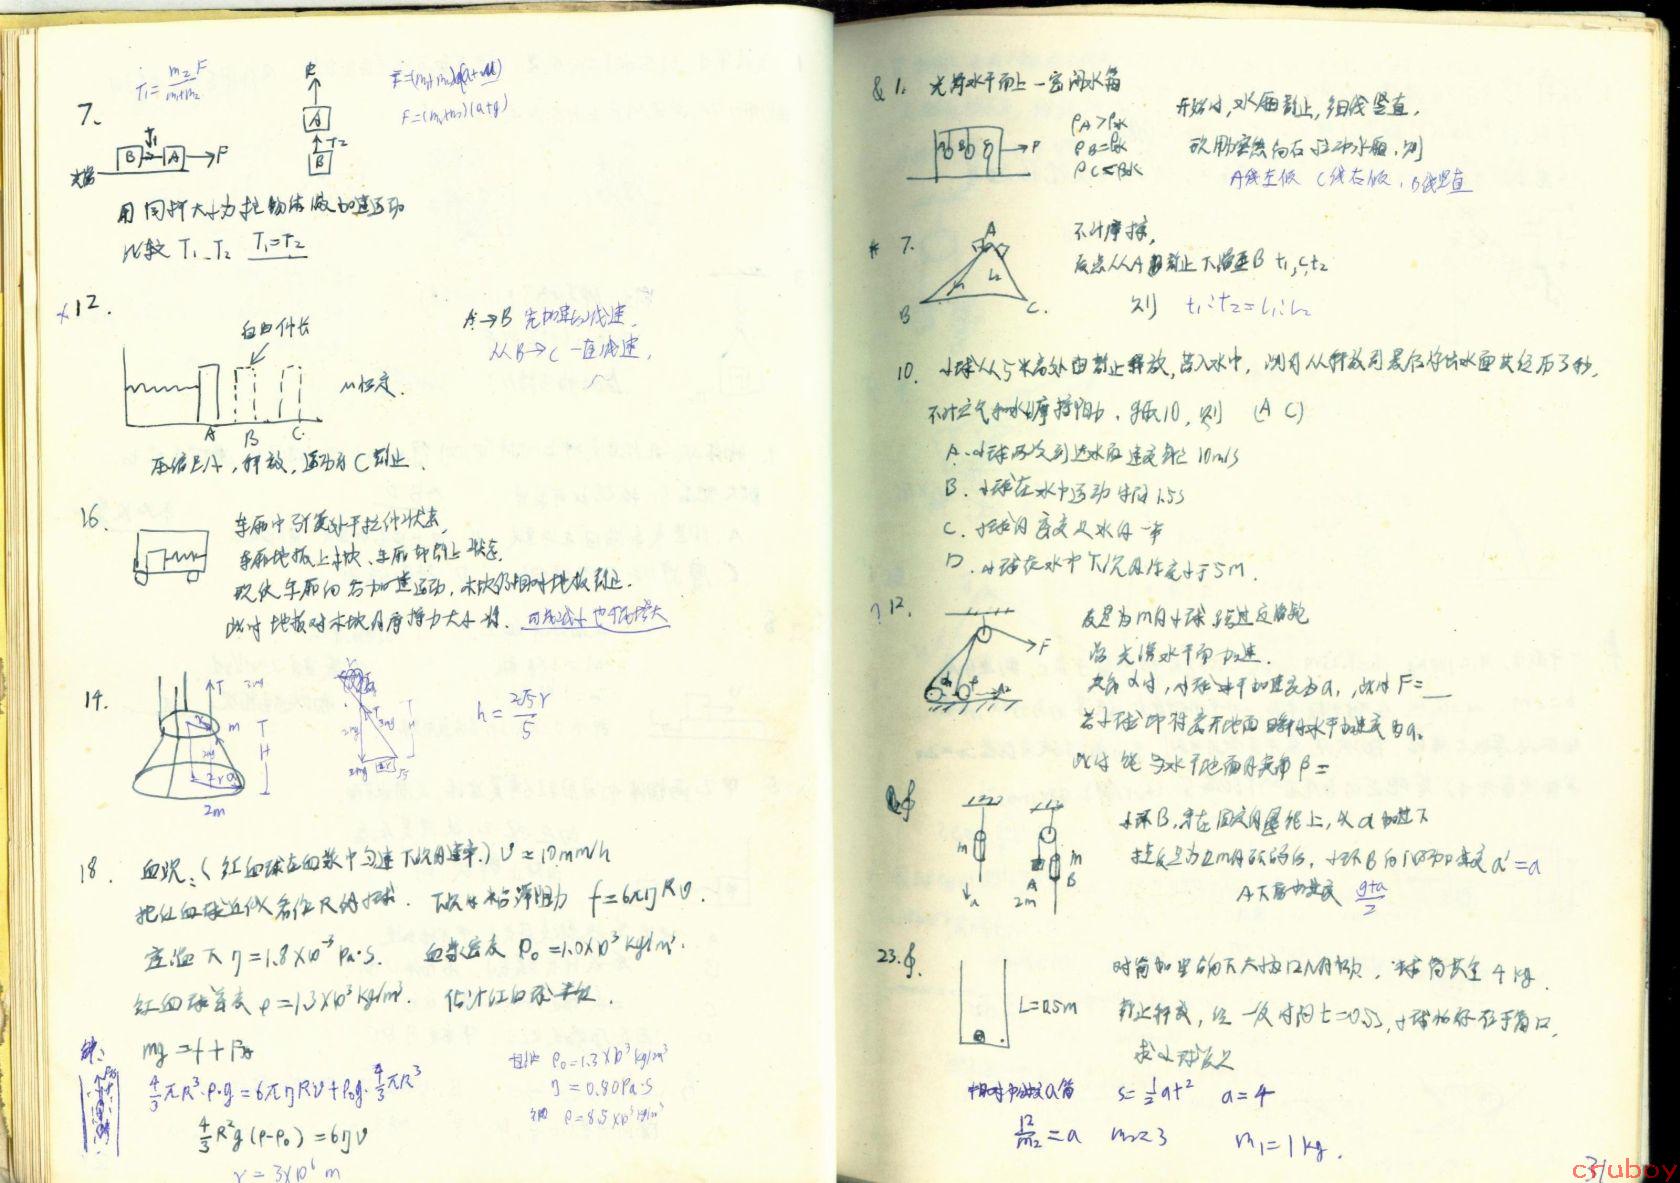 7.
T₁=m₂F/m₁+m₂
F=(m₁+m₂)(a+g)
B T₁ A →F
A
T2
B
用同样大小力拉物体做加速运动
比较 T₁、T₂ T₁=T₂
×12.
自由伸长
A→B 先加速后减速.
从B→C 一直减速.
μ恒定.
A B C
压缩与A,释放,运动到C静止.
16.
车厢中弹簧处于拉伸状态,
车厢地板上木块、车厢都静止状态.
现使车厢向右加速运动,木块仍相对地板静止.
此时地板对木块的摩擦力大小将. 可能减小也可能增大
14.
T 3mg
m
H
2m
h=2√5r/5
18. 血沉:(红血球在血浆中匀速下沉的速率.) v=10mm/h
把红血球近似看作R的小球. 下沉时粘滞阻力 f=6πηRv.
室温下 η=1.8×10⁻³ Pa·s. 血浆密度 ρ₀=1.0×10³ kg/m³.
红血球密度 ρ=1.3×10³ kg/m³. 估计红血球半径.
mg=f+F浮
4/3πR³·ρ·g=6πηRv+ρ₀g·4/3πR³
4/3R²g(ρ-ρ₀)=6ηv
ρ₀=1.3×10³ kg/m³
η=0.80Pa·s
ρ=8.5×10³ kg/m³
& 1. 光滑水平面上一密闭水箱
ρA>ρ水
ρB=ρ水
ρC<ρ水
开始时,水箱静止,细线竖直.
现用力向右拉动水箱,则
A线左倾 C线右倾,B线竖直
* 7.
A
B C.
不计摩擦,
质点从A由静止下滑至B t₁,C t₂
则 t₁:t₂=L₁:L₂
10. 小球从5米高处由静止释放,落入水中,测得从释放到最后浮出水面共经历3秒.
不计空气和水摩擦阻力,g取10,则 (A C)
A.小球两次到达水面速度都是10m/s
B.小球在水中运动时间1.5s
C.小球的密度是水的一半
D.小球在水中下沉的深度小于5m.
? 12.
F
质量为m的小球 跨过定滑轮
沿光滑水平面加速.
夹角α时,小球水平加速度为a₁,此时F=__
若小球即将离开地面瞬时水平加速度为a₂
此时绳与水平地面的夹角β=
m
a
A
2m
m
B
小环B,穿在固定的悬绳上,以a加速下
拉质量为2m的砝码A,小环B向下的加速度a'=a
A下落加速度 g+a/2
23.
L=0.5m
对筒加竖直向下大小为12N的力,球筒共重4kg.
静止释放,经一段时间t=0.5s,小球恰好位于筒口,
求小球质量
S=½at² a=4
12/m₂=a m₂=3 m₁=1kg.
31
cruboy